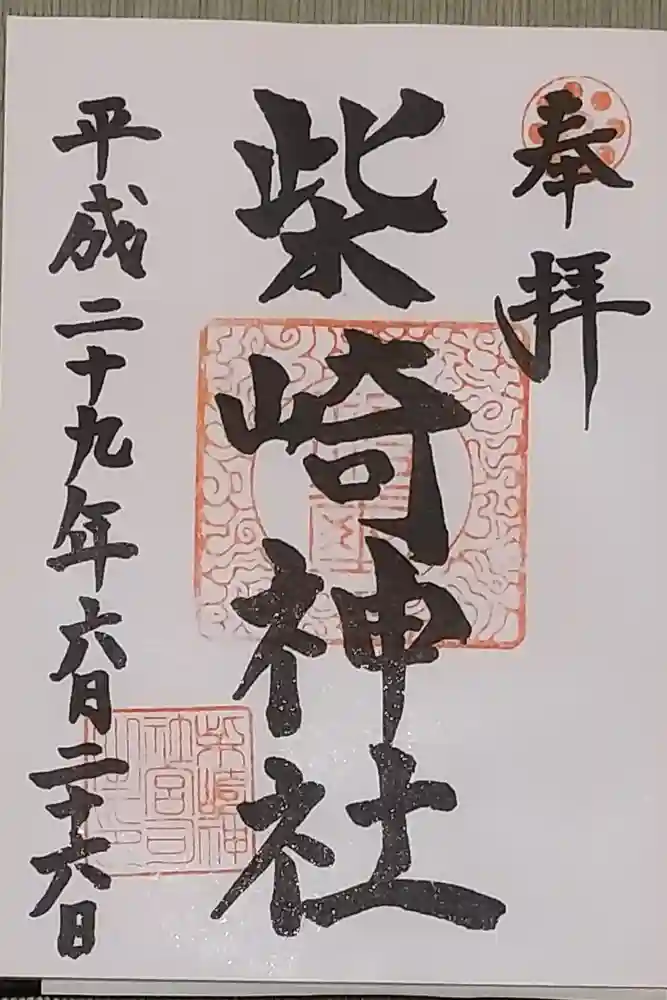 奉拝
柴崎神社
平成二十九年六月二十六日
柴崎神
社宮司